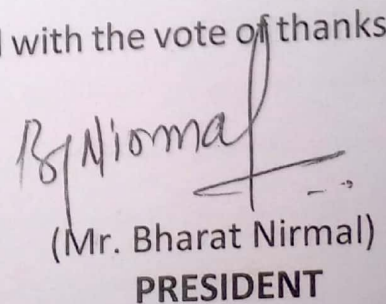 with the vote of thanks
BJNirmal
(Mr. Bharat Nirmal)
PRESIDENT